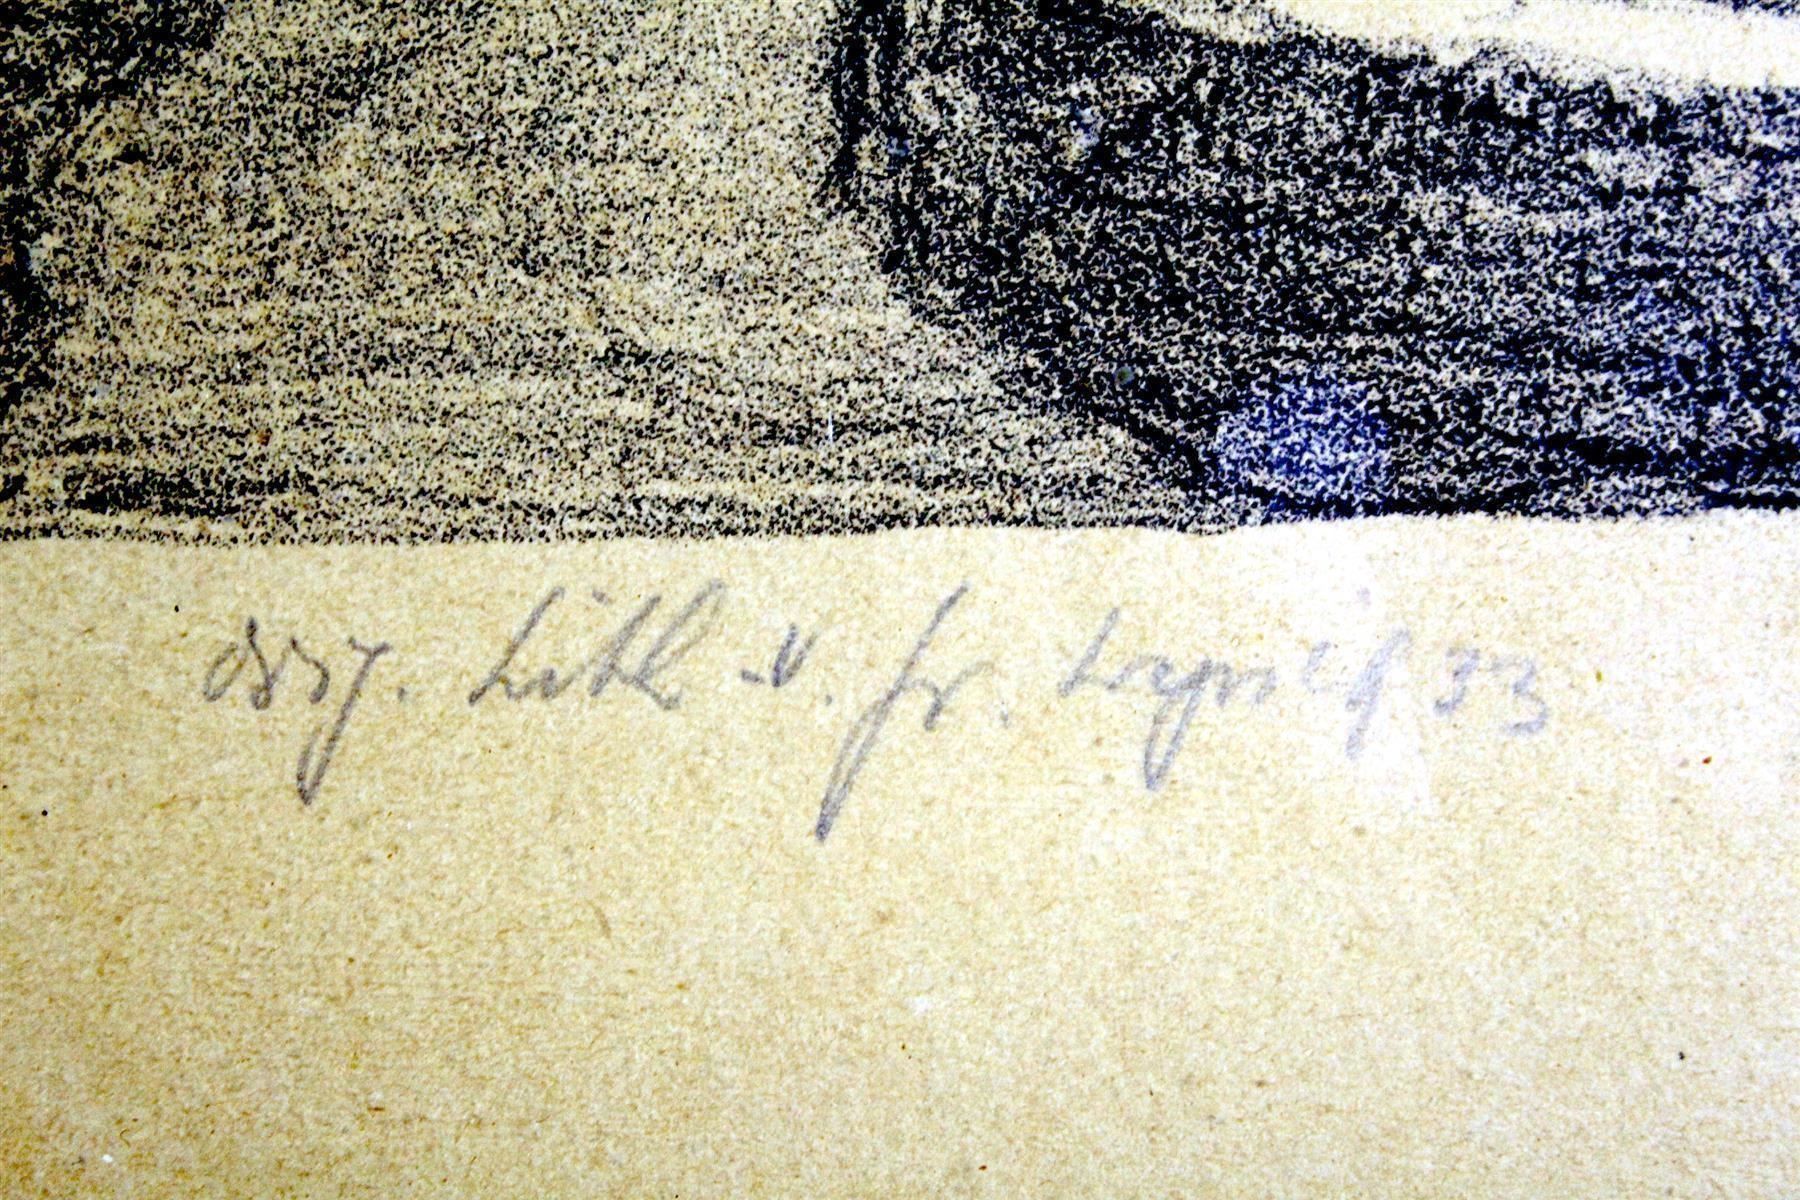 Orig. Lith v. Fr. 33